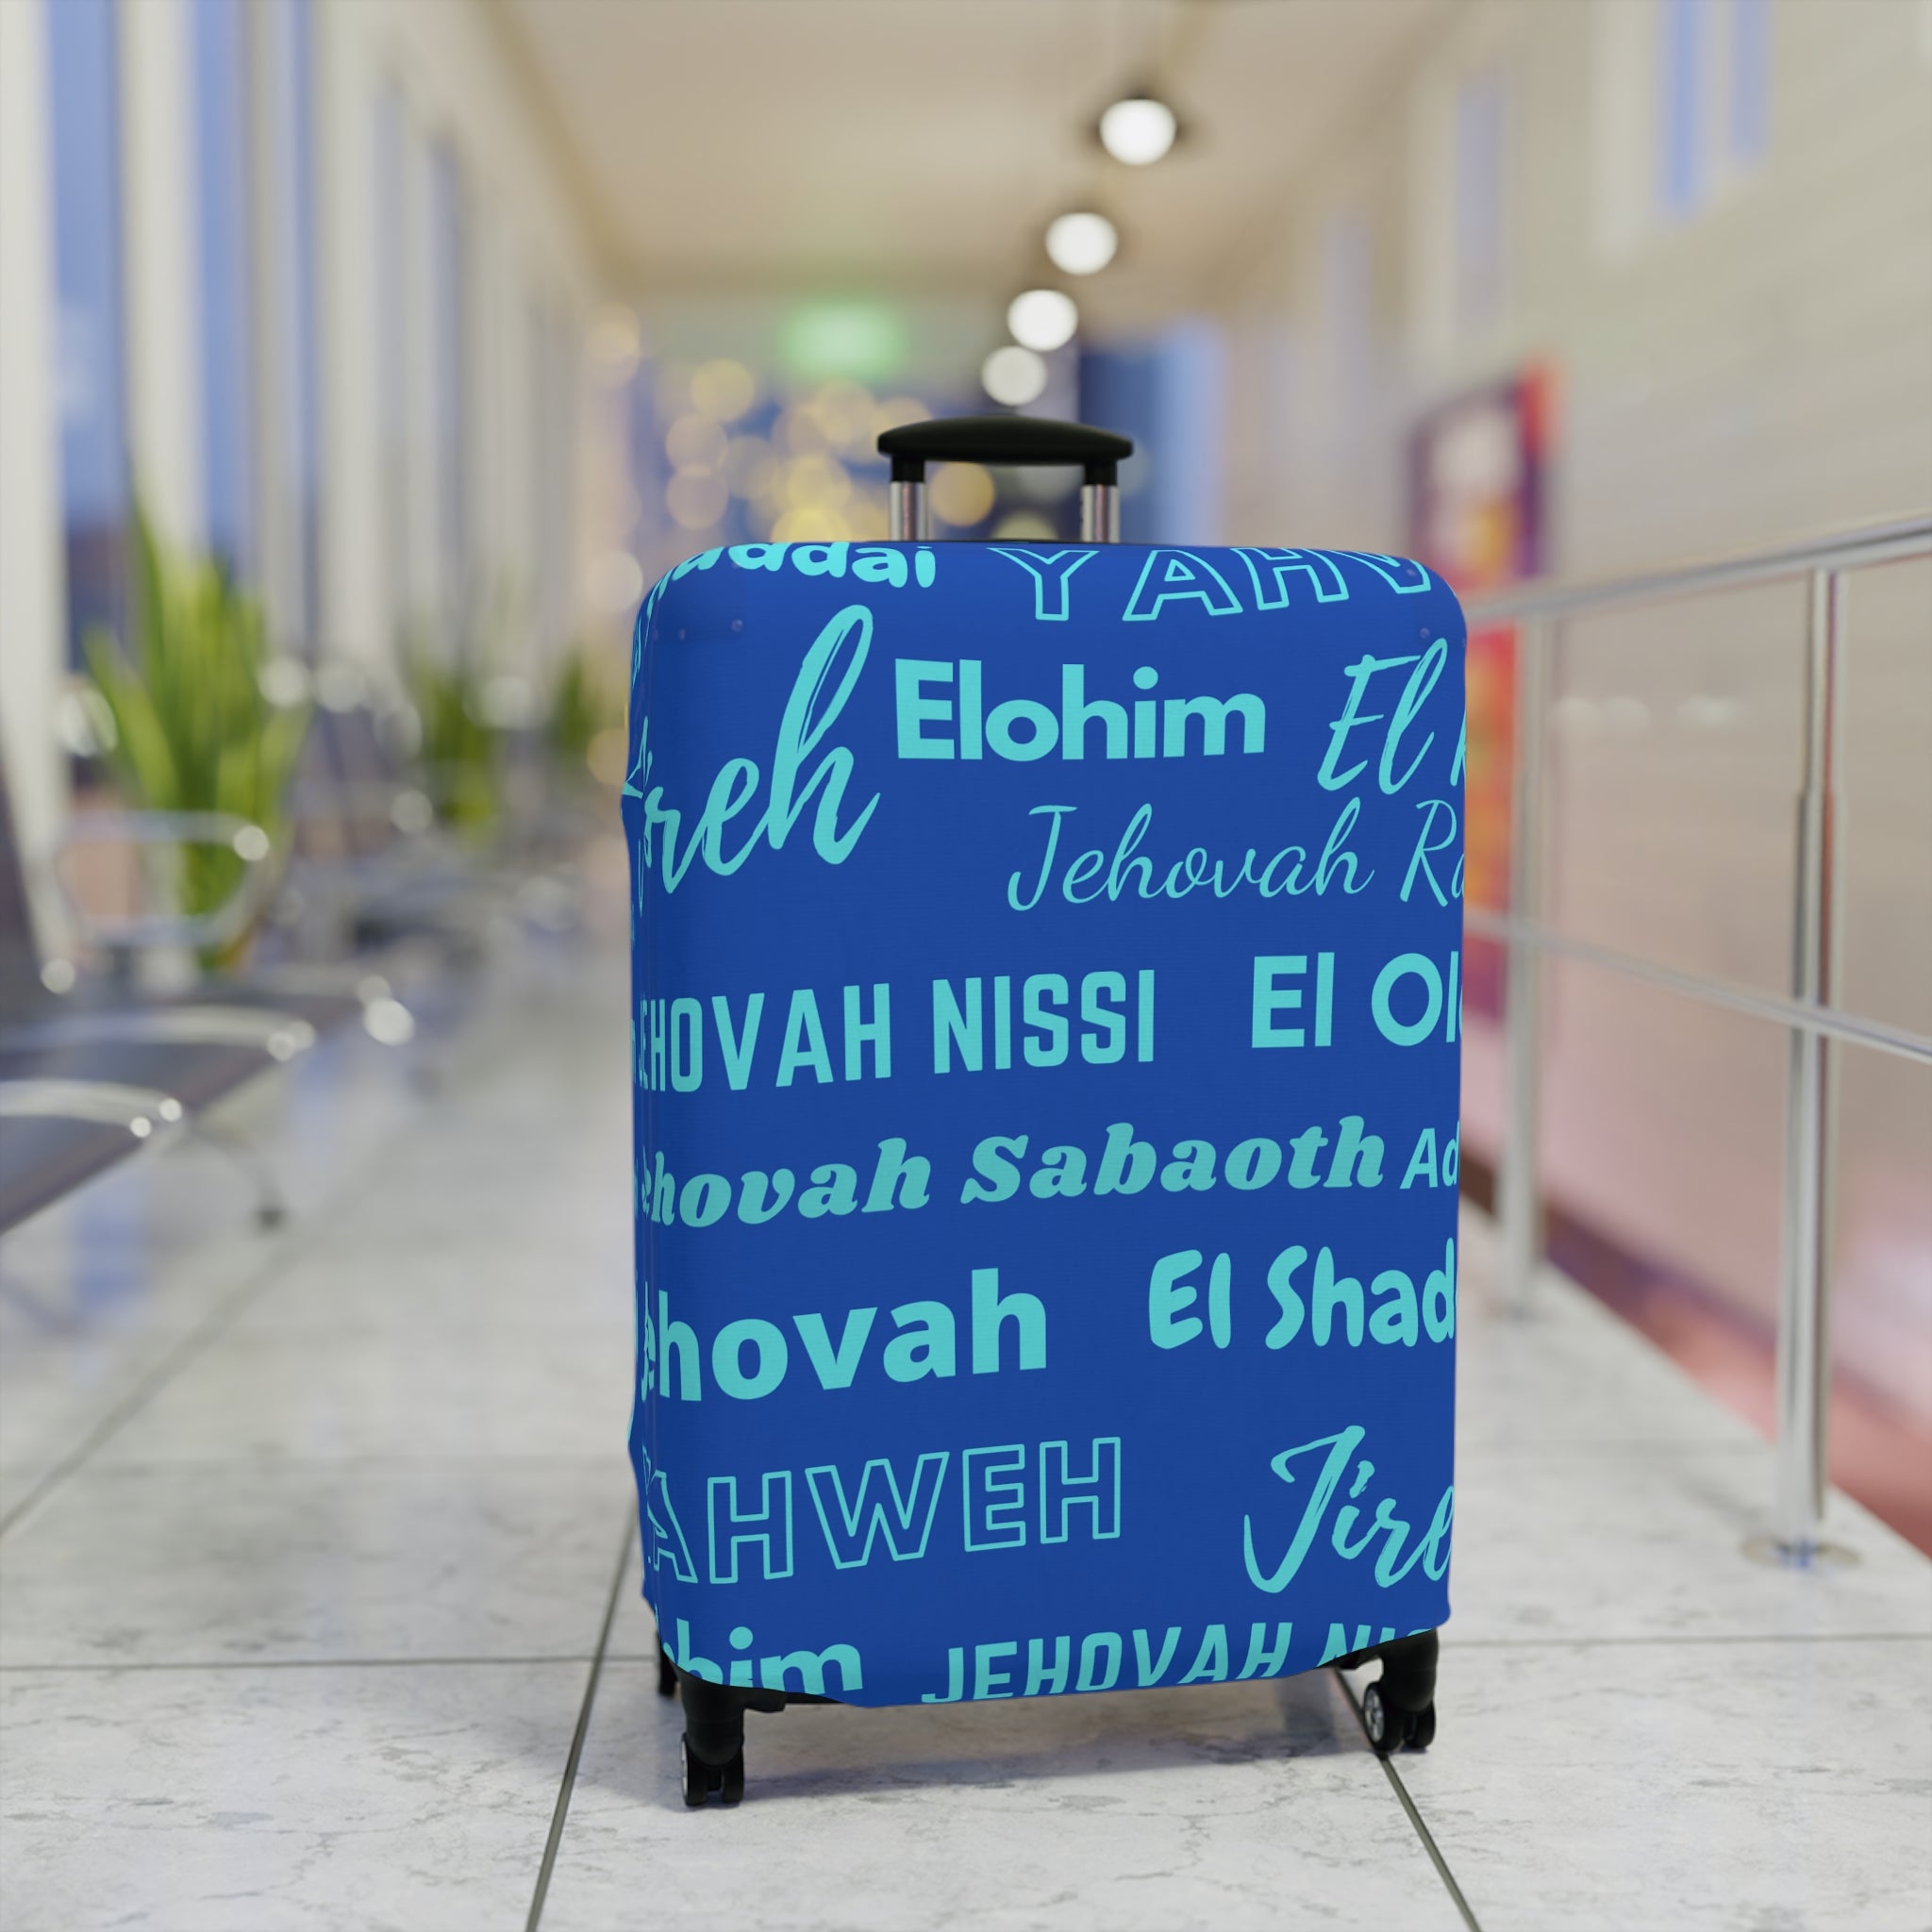 addai YAHV
Elohim El
reh
Jehovah Ra
EHOVAH NISSI El Ol
ehovah Sabaoth Ad
ehovah El Shad
YAHWEH Jire
him JEHOVAH NIS